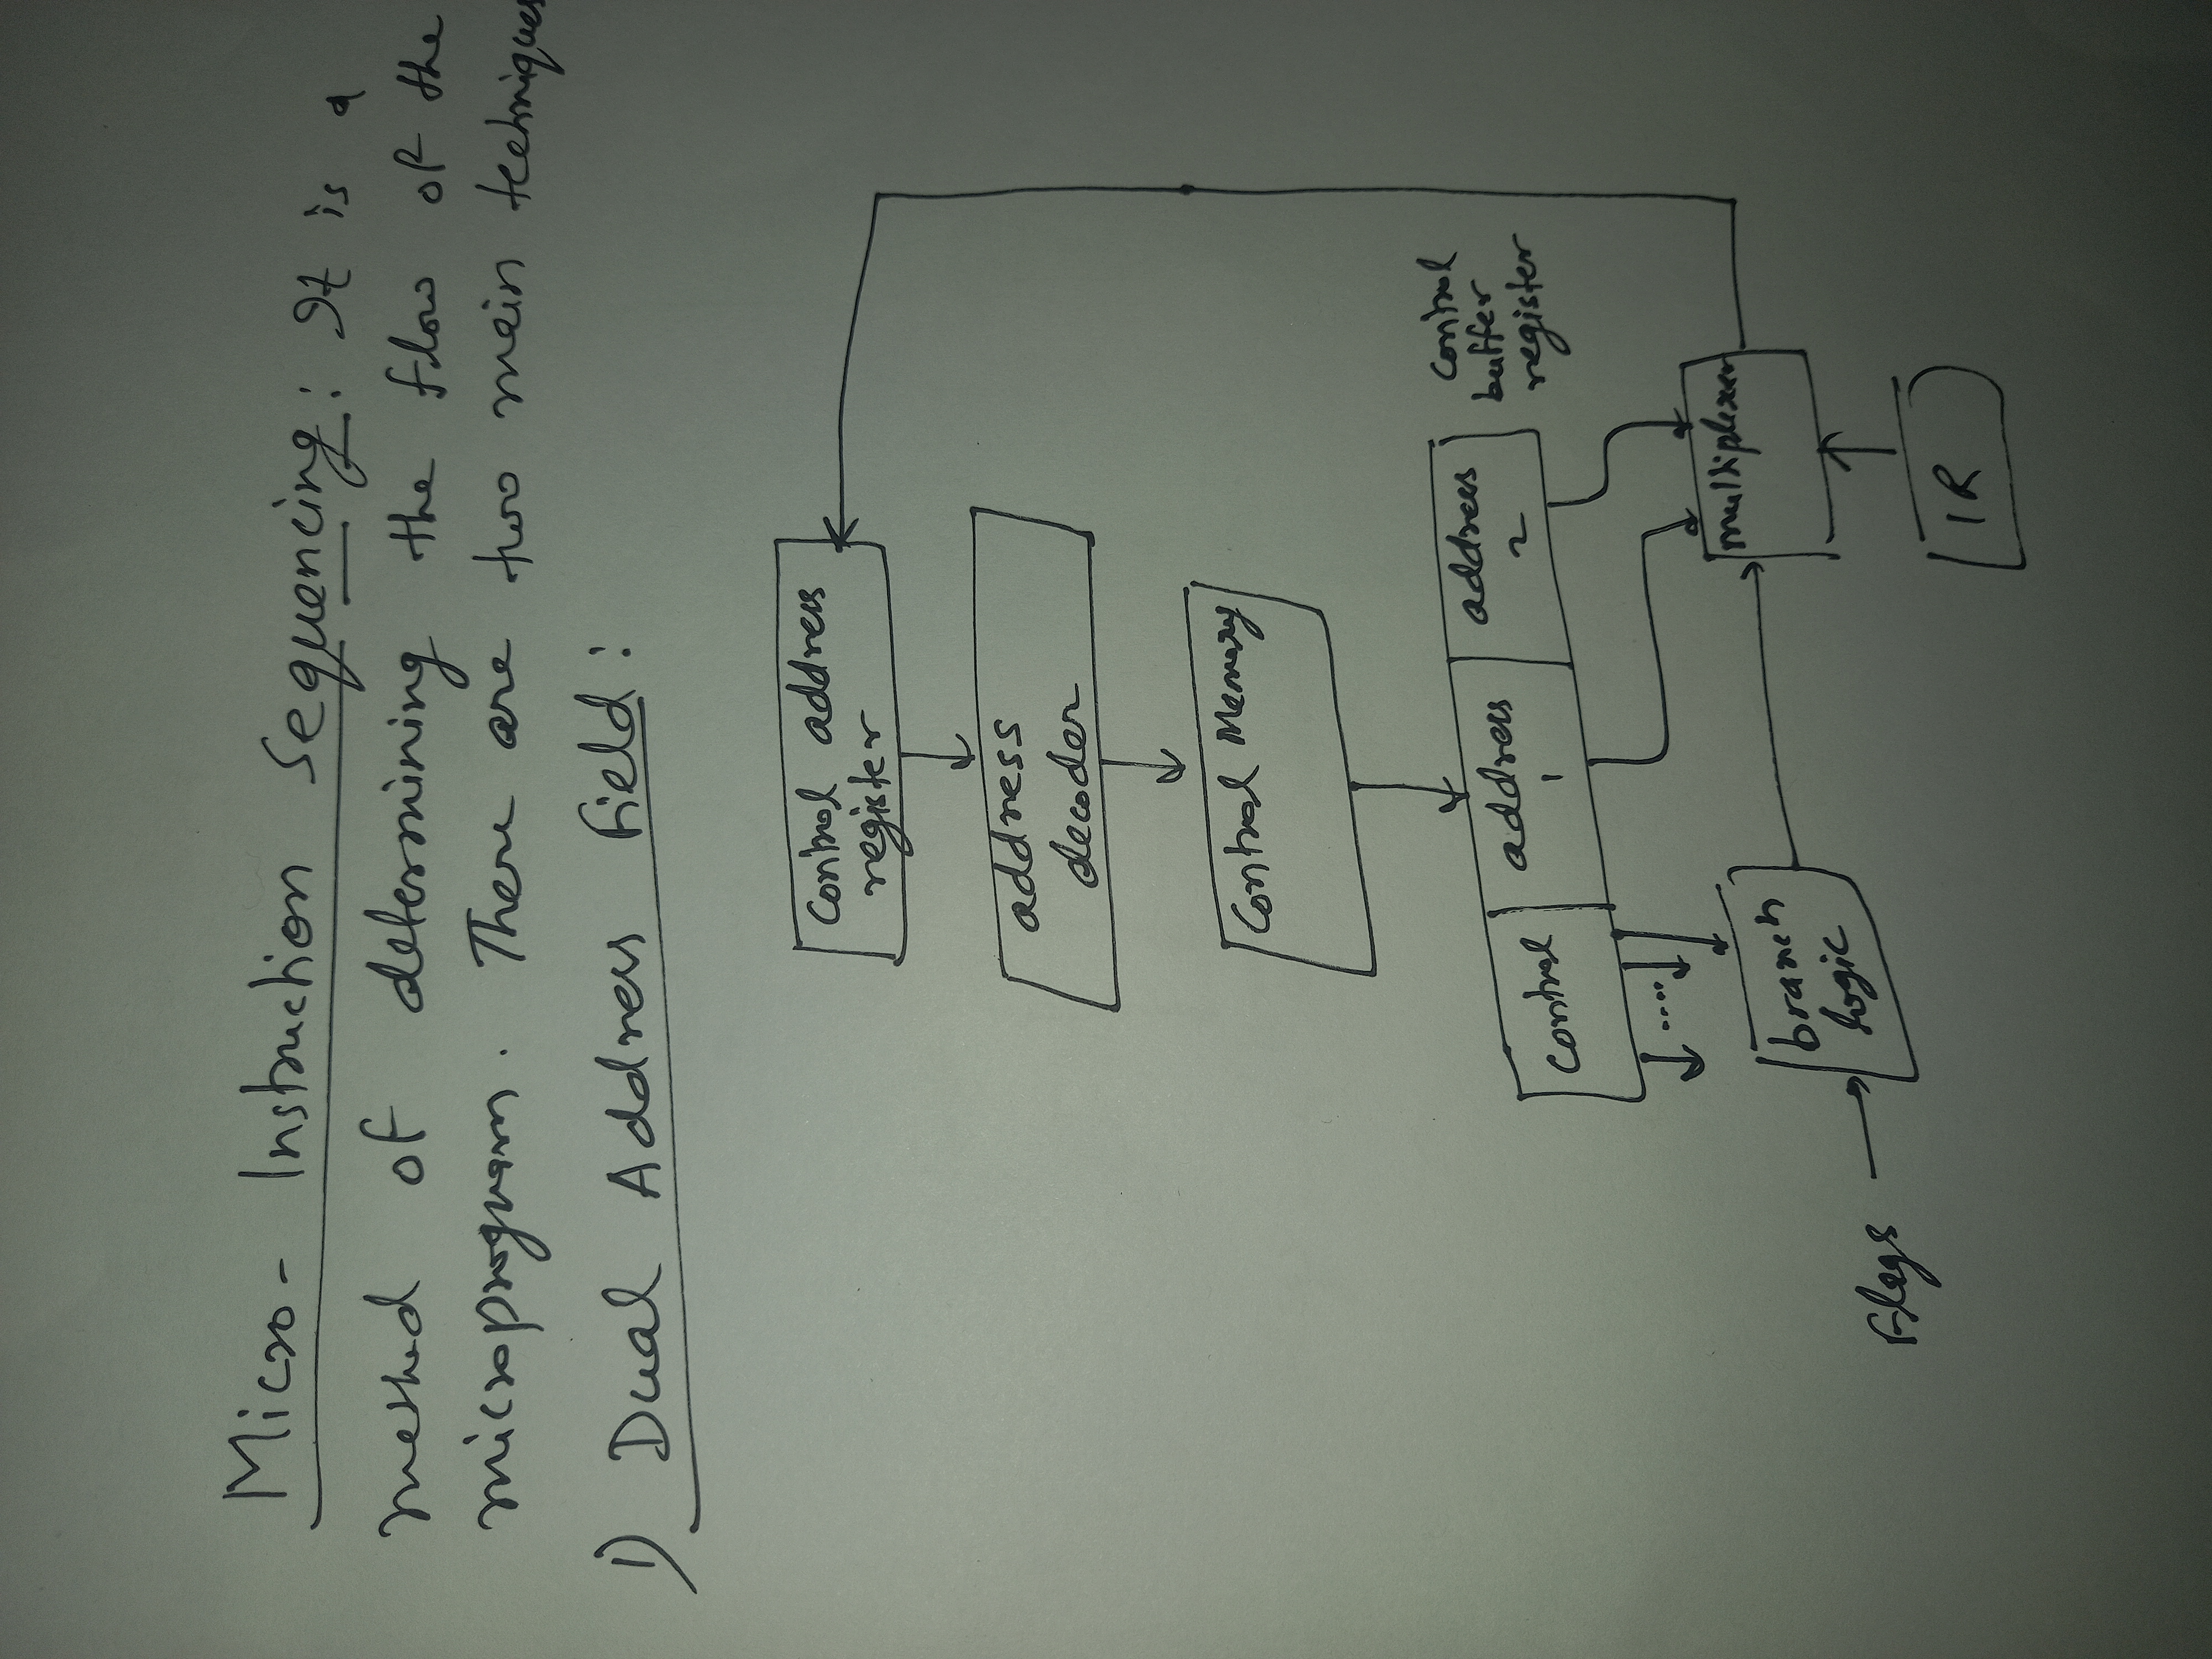 Micro- Instruction Sequencing: It is a
method of determining the flow of the
microprogram. There are two main techniques
1) Dual Address Field:
Control address
register
address
decoder
Control Memory
control
address
1
address
2
Control
buffer
register
.....
branch
logic
multiplexer
Flags
IR